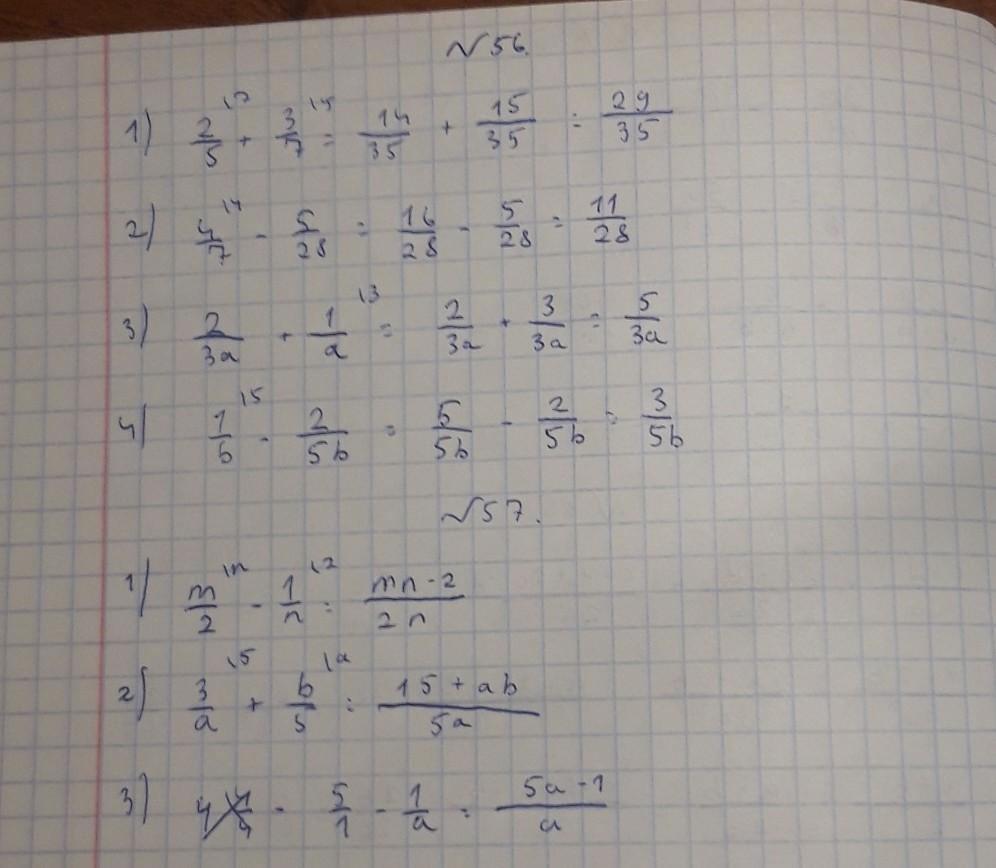 №56.
1) 2/5 \7 + 3/7 \5 = 14/35 + 15/35 = 29/35
2) 4/7 \4 - 5/28 = 16/28 - 5/28 = 11/28
3) 2/3a + 1/a \3 = 2/3a + 3/3a = 5/3a
4) 1/b \5 - 2/5b = 5/5b - 2/5b = 3/5b
№57.
1) m/2 \n - 1/n \2 = mn-2/2n
2) 3/a \5 + b/5 \a = 15+ab/5a
3) - 5/1 - 1/a = 5a-1/a